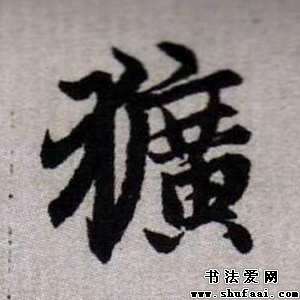 獷
书法爱网
www.shufaai.com